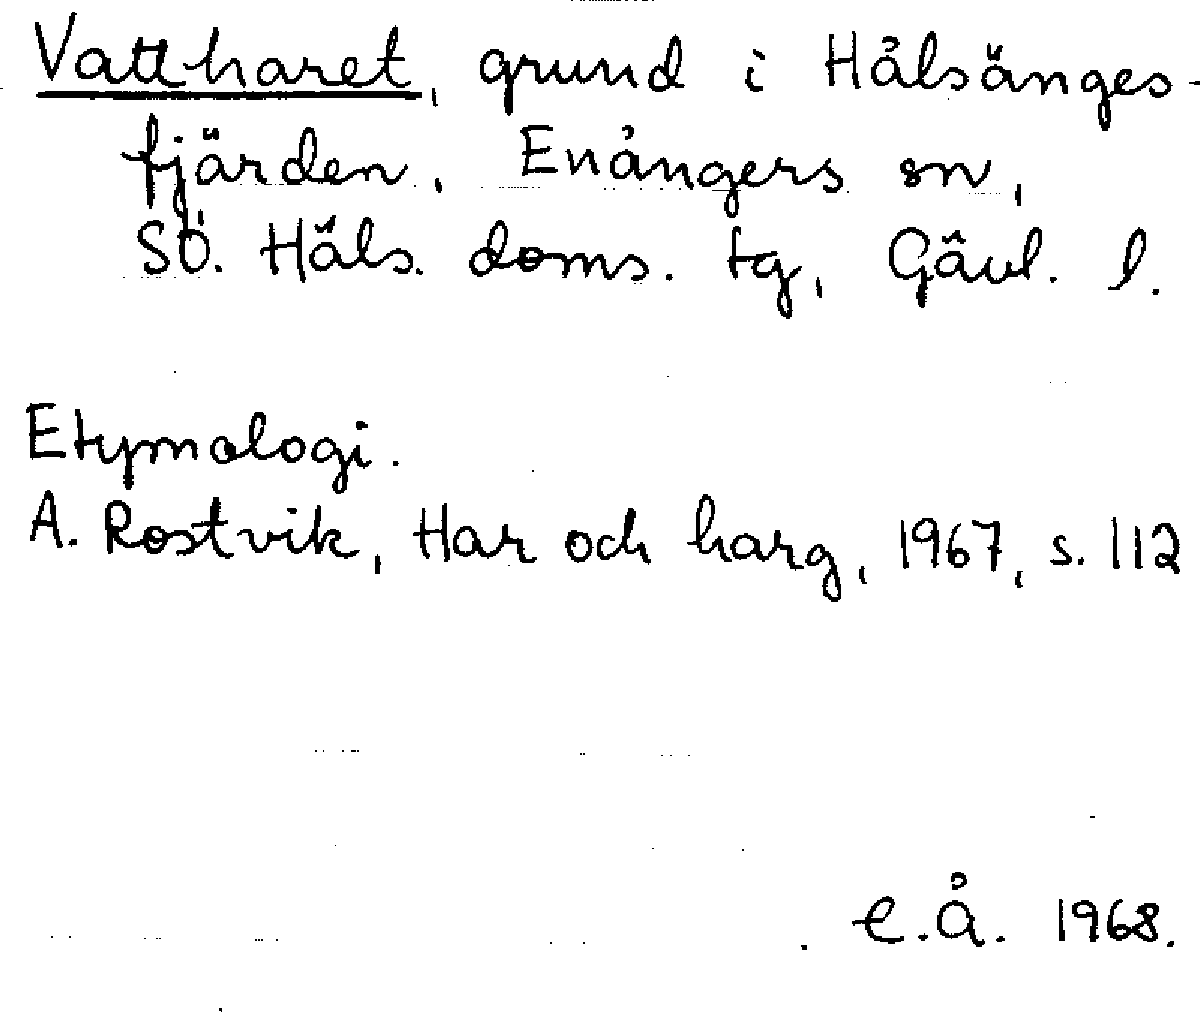 Vattharet, grund i Hålsänges-
fjärden, Enångers sn,
SÖ. Häls. doms. tg, Gävl. l.
Etymologi.
A. Rostvik, Har och harg, 1967, s. 112
E.Å. 1968.